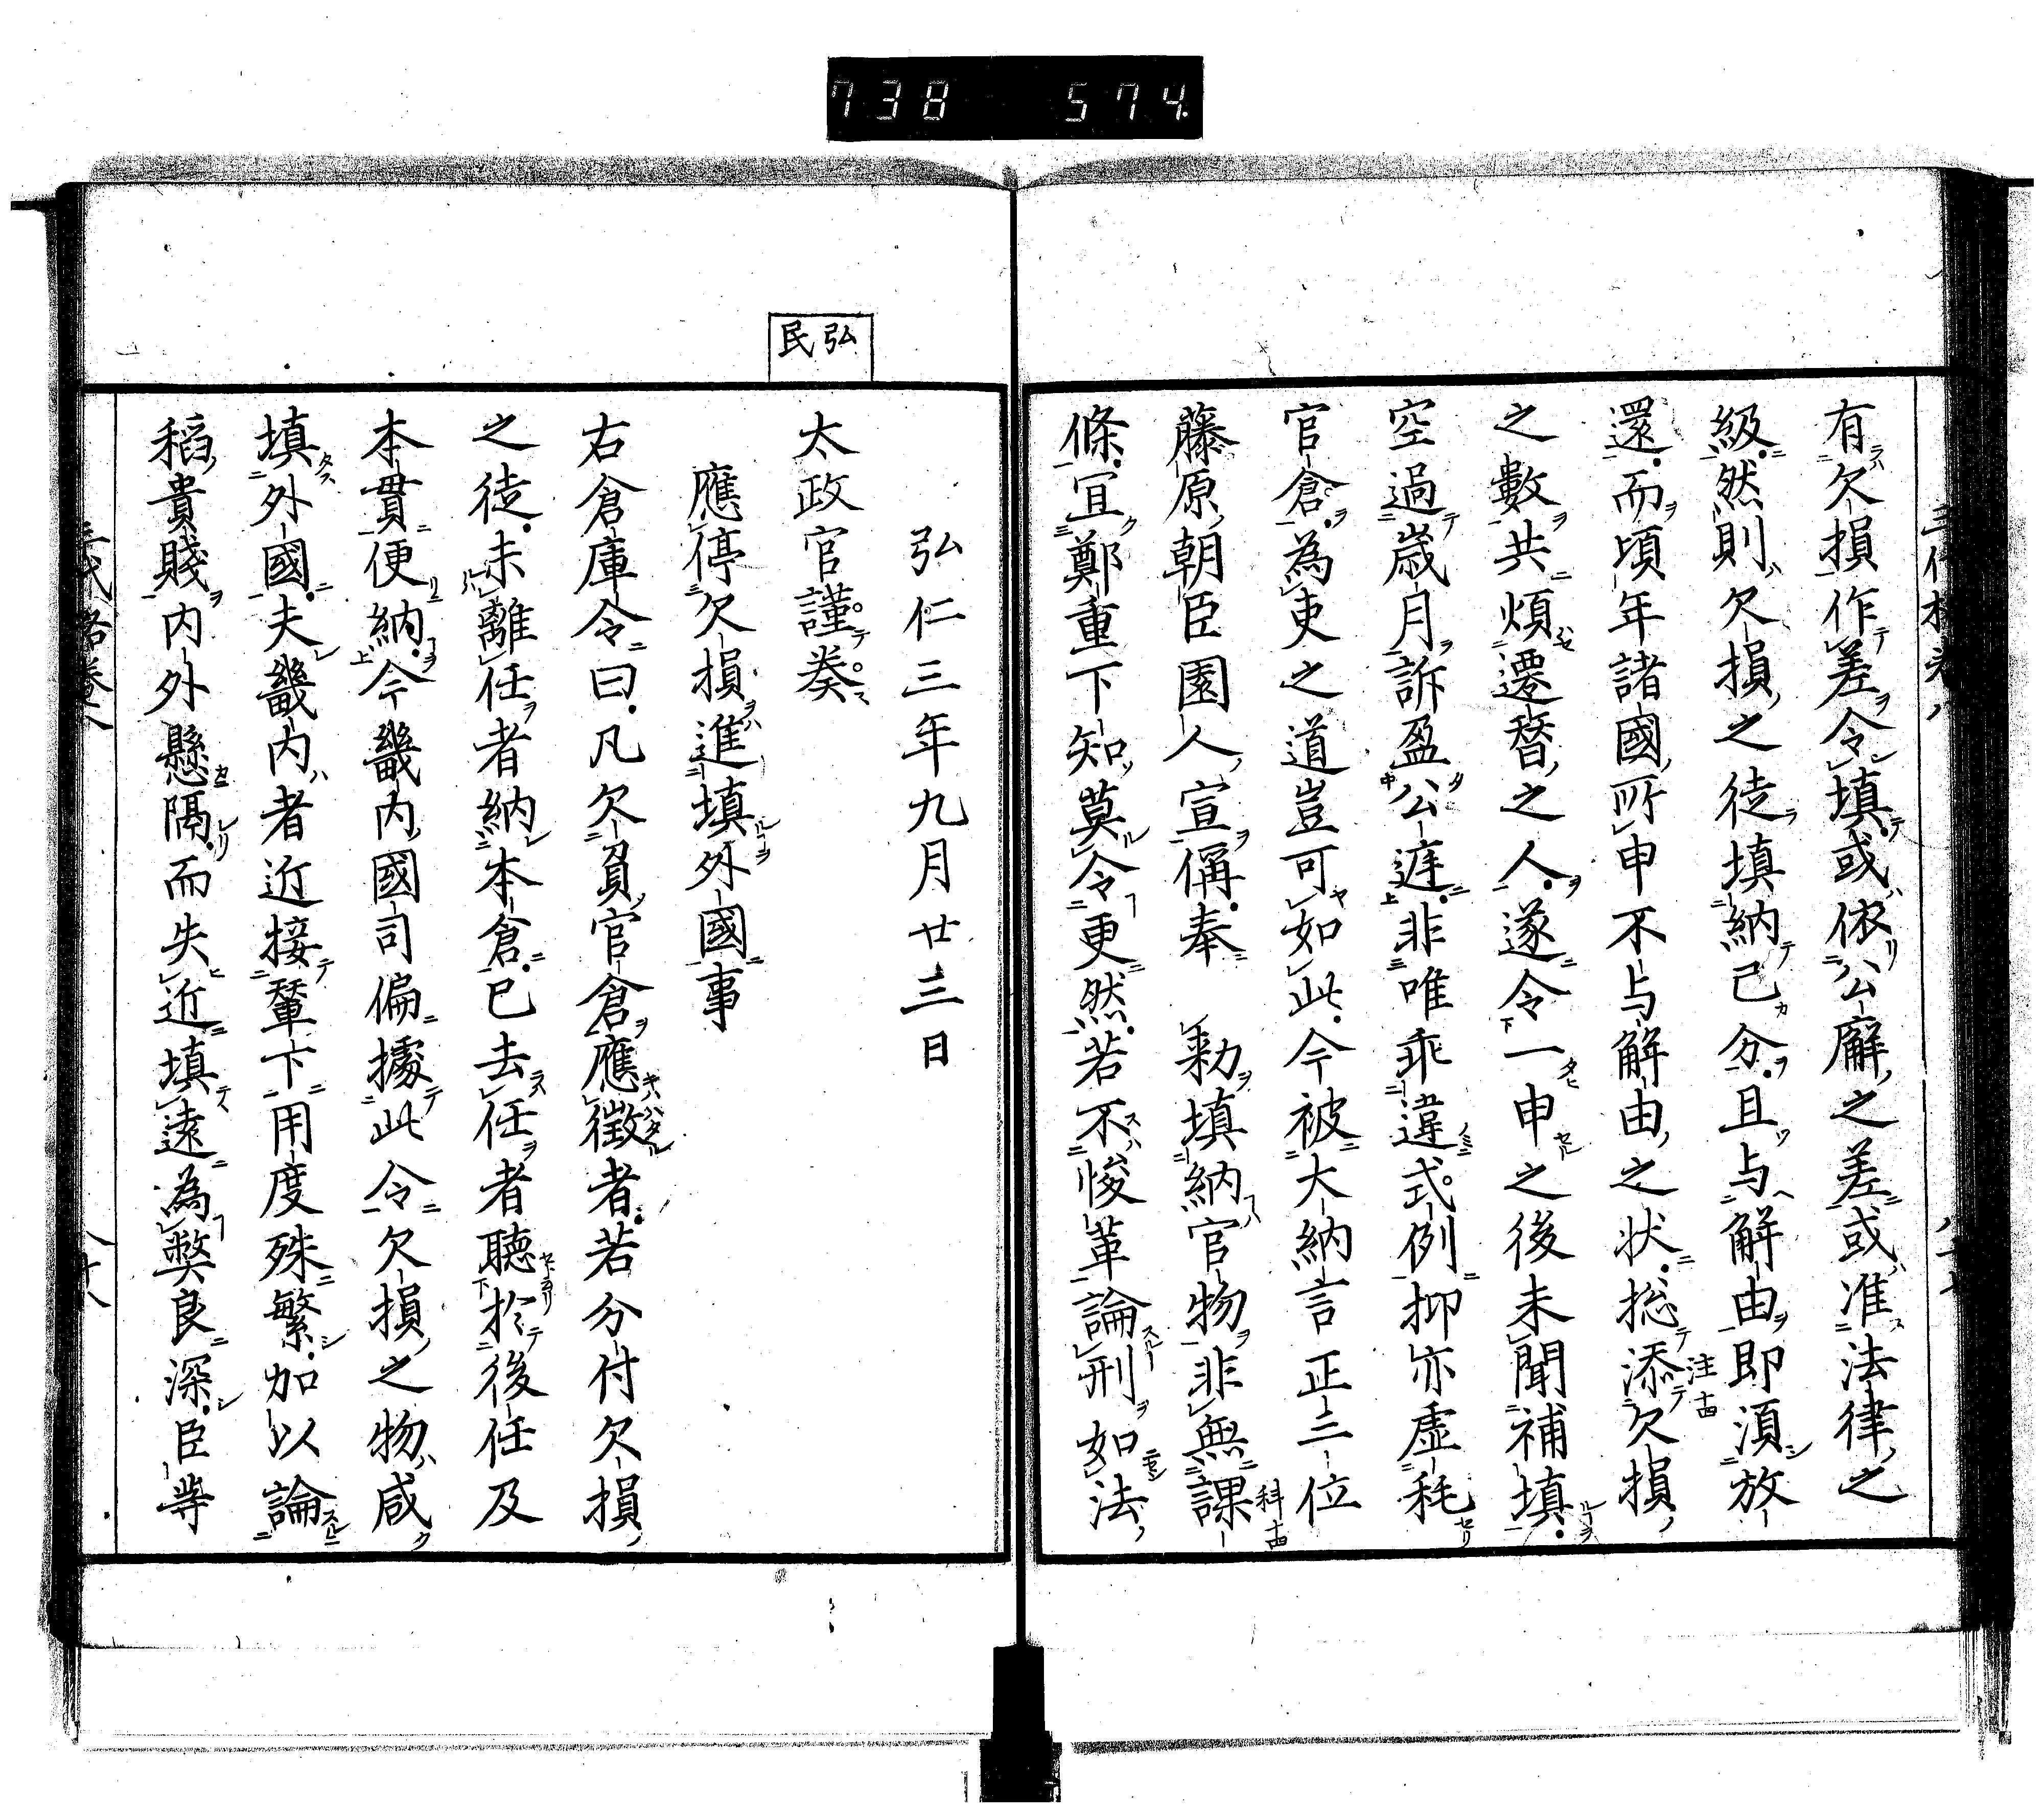 738 574
有欠損作差令填或依公廨之差或准法律之
級然則欠損之徒填納己分且与解由即須放
還而頃年諸國所申不与解由之状揔添欠損
注十四
之數共煩遷替之人遂令一申之後未聞補填
空過歲月訴盈公遅非唯乖違式例抑亦虛耗
官倉為吏之道豈可如此今被大納言正三位
藤原朝臣園人宣偁奉 勅填納官物非無課
科十四
條宜鄭重下知莫令更然若不悛革論刑如法
弘仁三年九月廿三日
弘民
太政官謹奏
應停欠損進填外國事
右倉庫令曰凡欠負官倉應徵者若分付欠損
之徒未離任者納本倉已去任者聽於後任及
本貫便納今畿内國司偏據此令欠損之物咸
填外國夫畿内者近接輦下用度殊繁加以論
稻貴賤内外懸隔而失近填遠為弊良深臣等